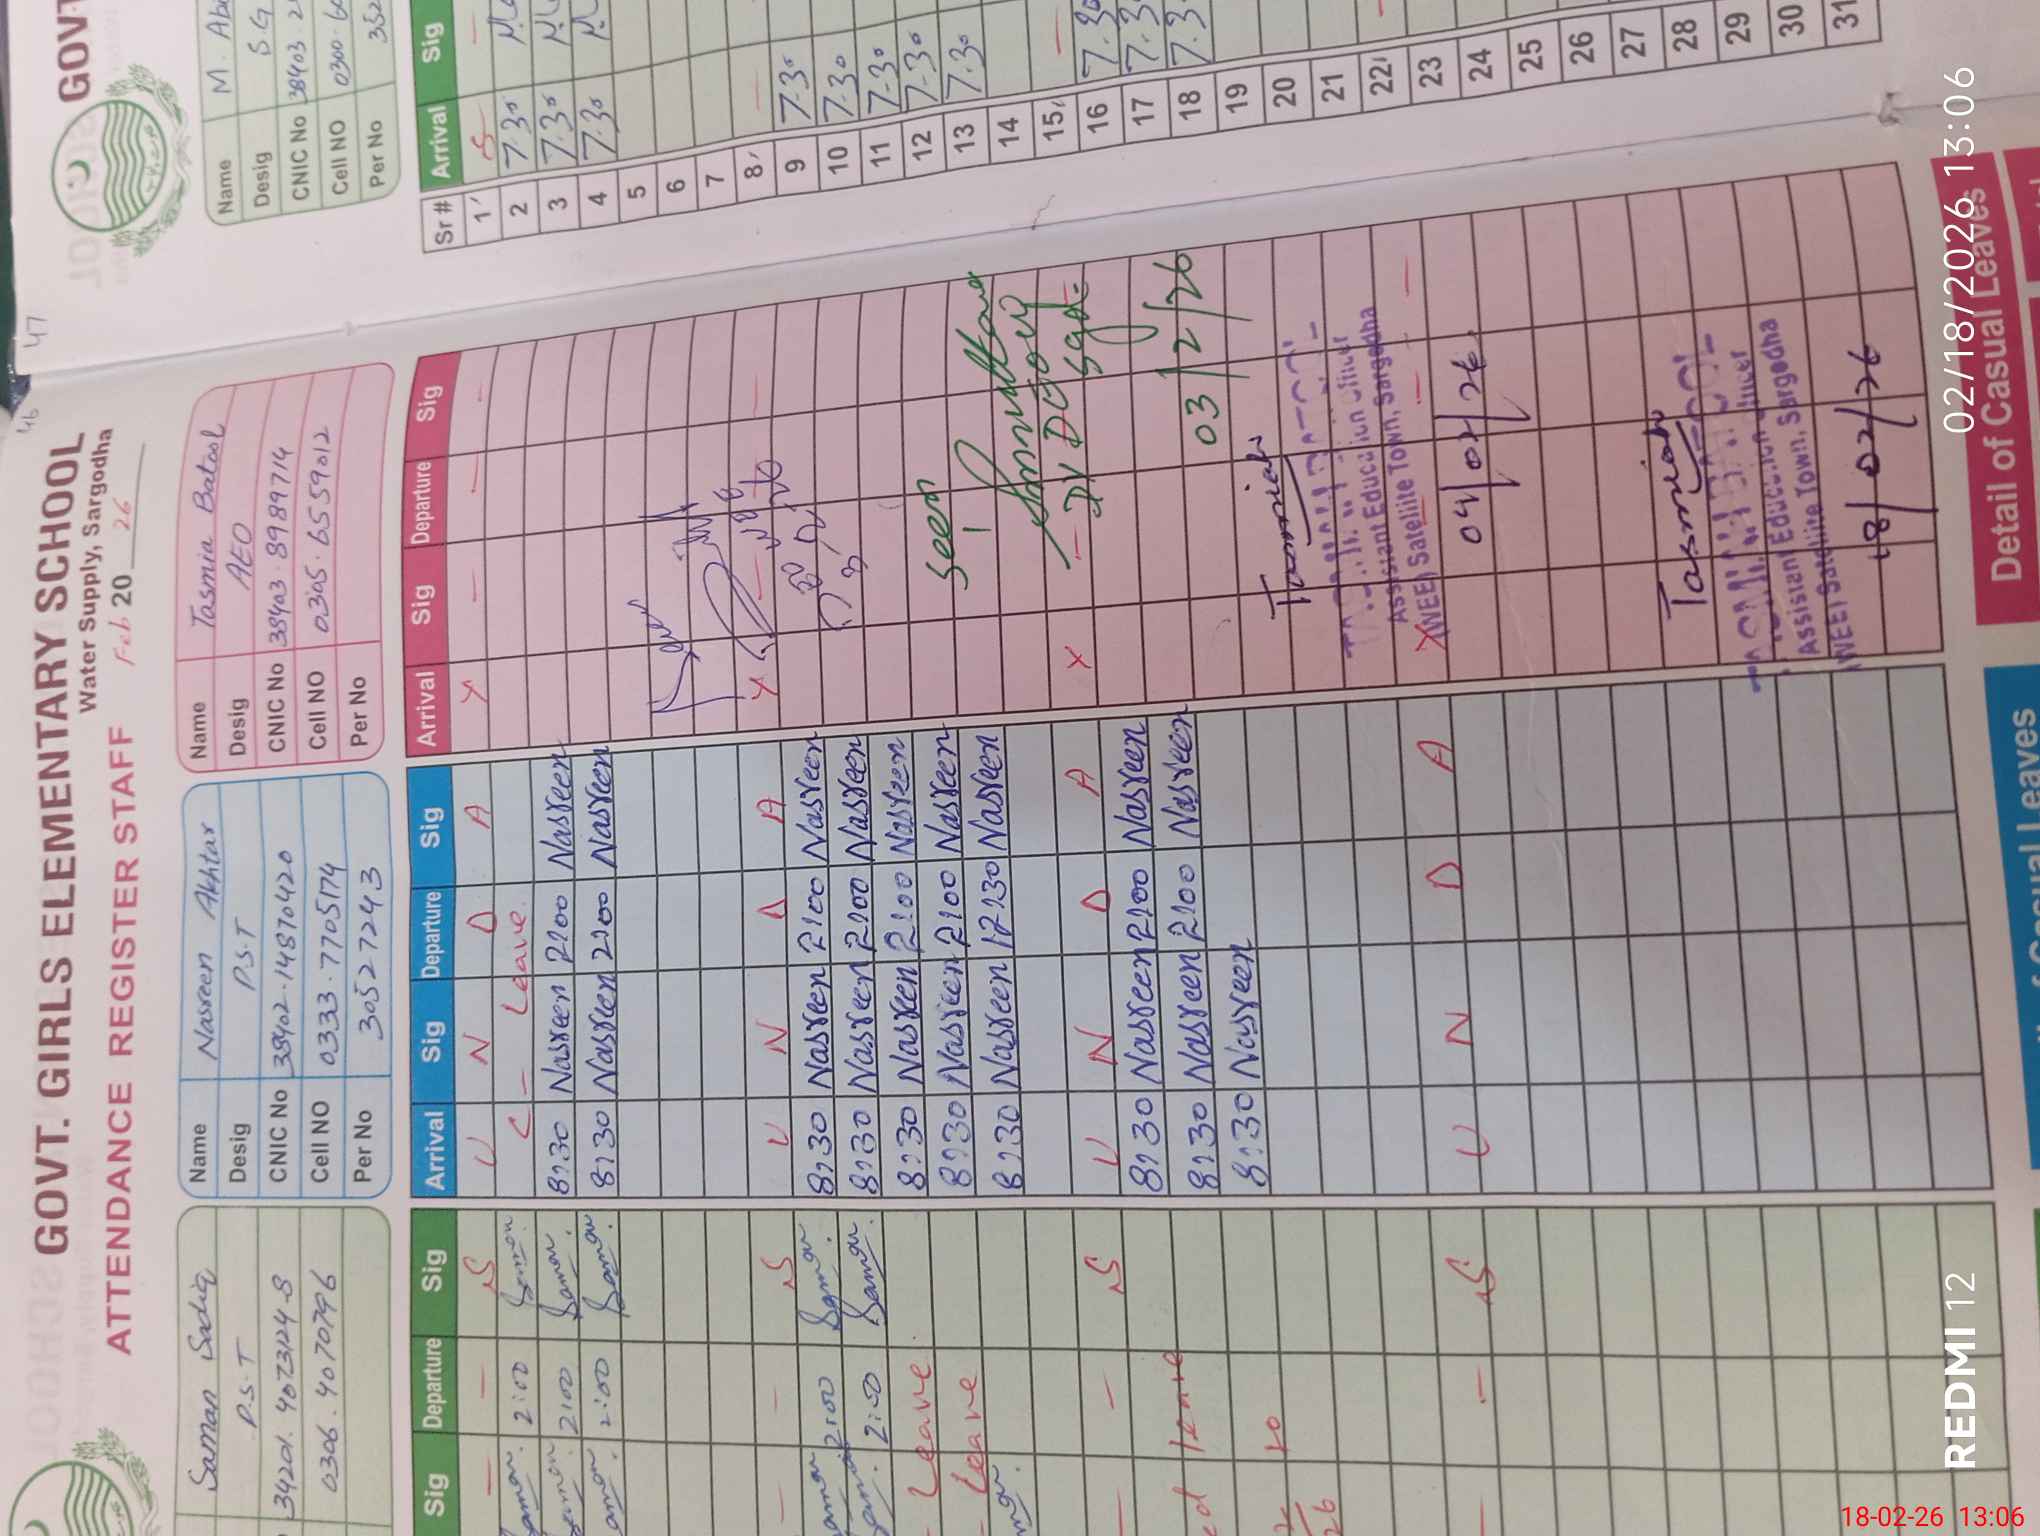 46
47
GOVT. GIRLS ELEMENTARY SCHOOL
Water Supply, Sargodha
ATTENDANCE REGISTER STAFF Feb 2026
Name Saman Sadiq
P.S.T
0306.4070796
Sig Departure Sig
— — S
2:00 Saman.
2:00 Saman.
2:00 Saman.
— — S
2:00 Saman.
2:50 Saman.
Leave
Leave
— — S
— — S
Name Nasreen Akhtar
Desig P.S.T
CNIC No 38402.14870420
Cell NO 0333.7705174
Per No 30527243
Arrival Sig Departure Sig
U N D A
C — Leave.
8:30 Nasreen 2:00 Nasreen
8:30 Nasreen 2:00 Nasreen
U N D A
8:30 Nasreen 2:00 Nasreen
8:30 Nasreen 2:00 Nasreen
8:30 Nasreen 2:00 Nasreen
8:30 Nasreen 2:00 Nasreen
8:30 Nasreen 12:30 Nasreen
U N D A
8:30 Nasreen 2:00 Nasreen
8:30 Nasreen 2:00 Nasreen
8:30 Nasreen
U N D A
Name Tasmia Batool
Desig AEO
CNIC No 38403.8989714
Cell NO 0305.6559012
Per No
Arrival Sig Departure Sig
X — — —
X — —
seen
X — —
03/2/26
Assistant Education Officer
(WEE) Satellite Town, Sargodha
X — — —
04/02/26
Assistant Education Officer
(WEE) Satellite Town, Sargodha
18/02/26
Detail of Casual Leaves
Casual Leaves
GOVT
Name M. Ab
Desig S.G
CNIC No 38403.2
Cell NO 0300.6
Per No 352
Sr # Arrival Sig
1 S —
2 7.30
3 7.30
4 7.30
5
6
7
8 —
9 7.30
10 7.30
11 7.30
12 7.30
13 7.30
14
15 —
16 7.30
17 7.30
18 7.30
19
20
21
22 —
23
24
25
26
27
28
29
30
31
REDMI 12
02/18/2026 13:06
18-02-26 13:06